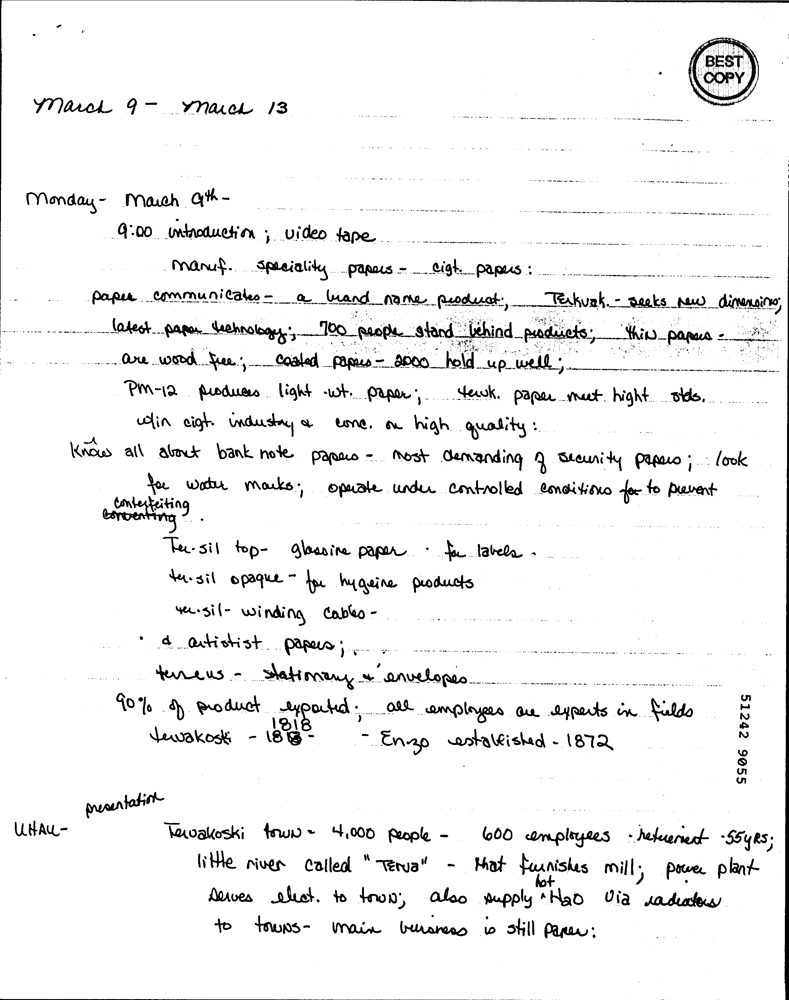 BEST
COPY
March 9 - March 13
Monday - March 9th -
9:00 introduction ; video tape
manuf. speciality papers - cigt. papers :
paper communicates - a brand name product ; Terkuak. - seeks new dimensions;
latest paper technology ; 700 people stand behind products ; thin papers -
are wood free ; coated papers - 2000 hold up well ;
PM-12 produces light -wt. paper ; terwk. paper meet hight stds.
w/in cigt. industry & conc. on high quality :
Know all about bank note papers - most demanding of security papers ; look
for water marks ; operate under controlled conditions for to prevent
conterfeiting
Ter.sil top - glassine paper . for labels .
ter.sil opaque - for hygeine products
ter.sil - winding cables -
& artistist papers ;
terreus - stationary & envelopes
90% of product exported ; all employees are experts in fields
1818
tervakoski - - Enzo established - 1872
51242 9055
presentation
UHAU - Tervakoski town - 4,000 people - 600 employees - retirement - 55 yRS;
little river called "TERVA" - that furnishes mill ; power plant
serves elect. to town ; also supply ^hot H2O via radiators
to towns - main business is still paper :